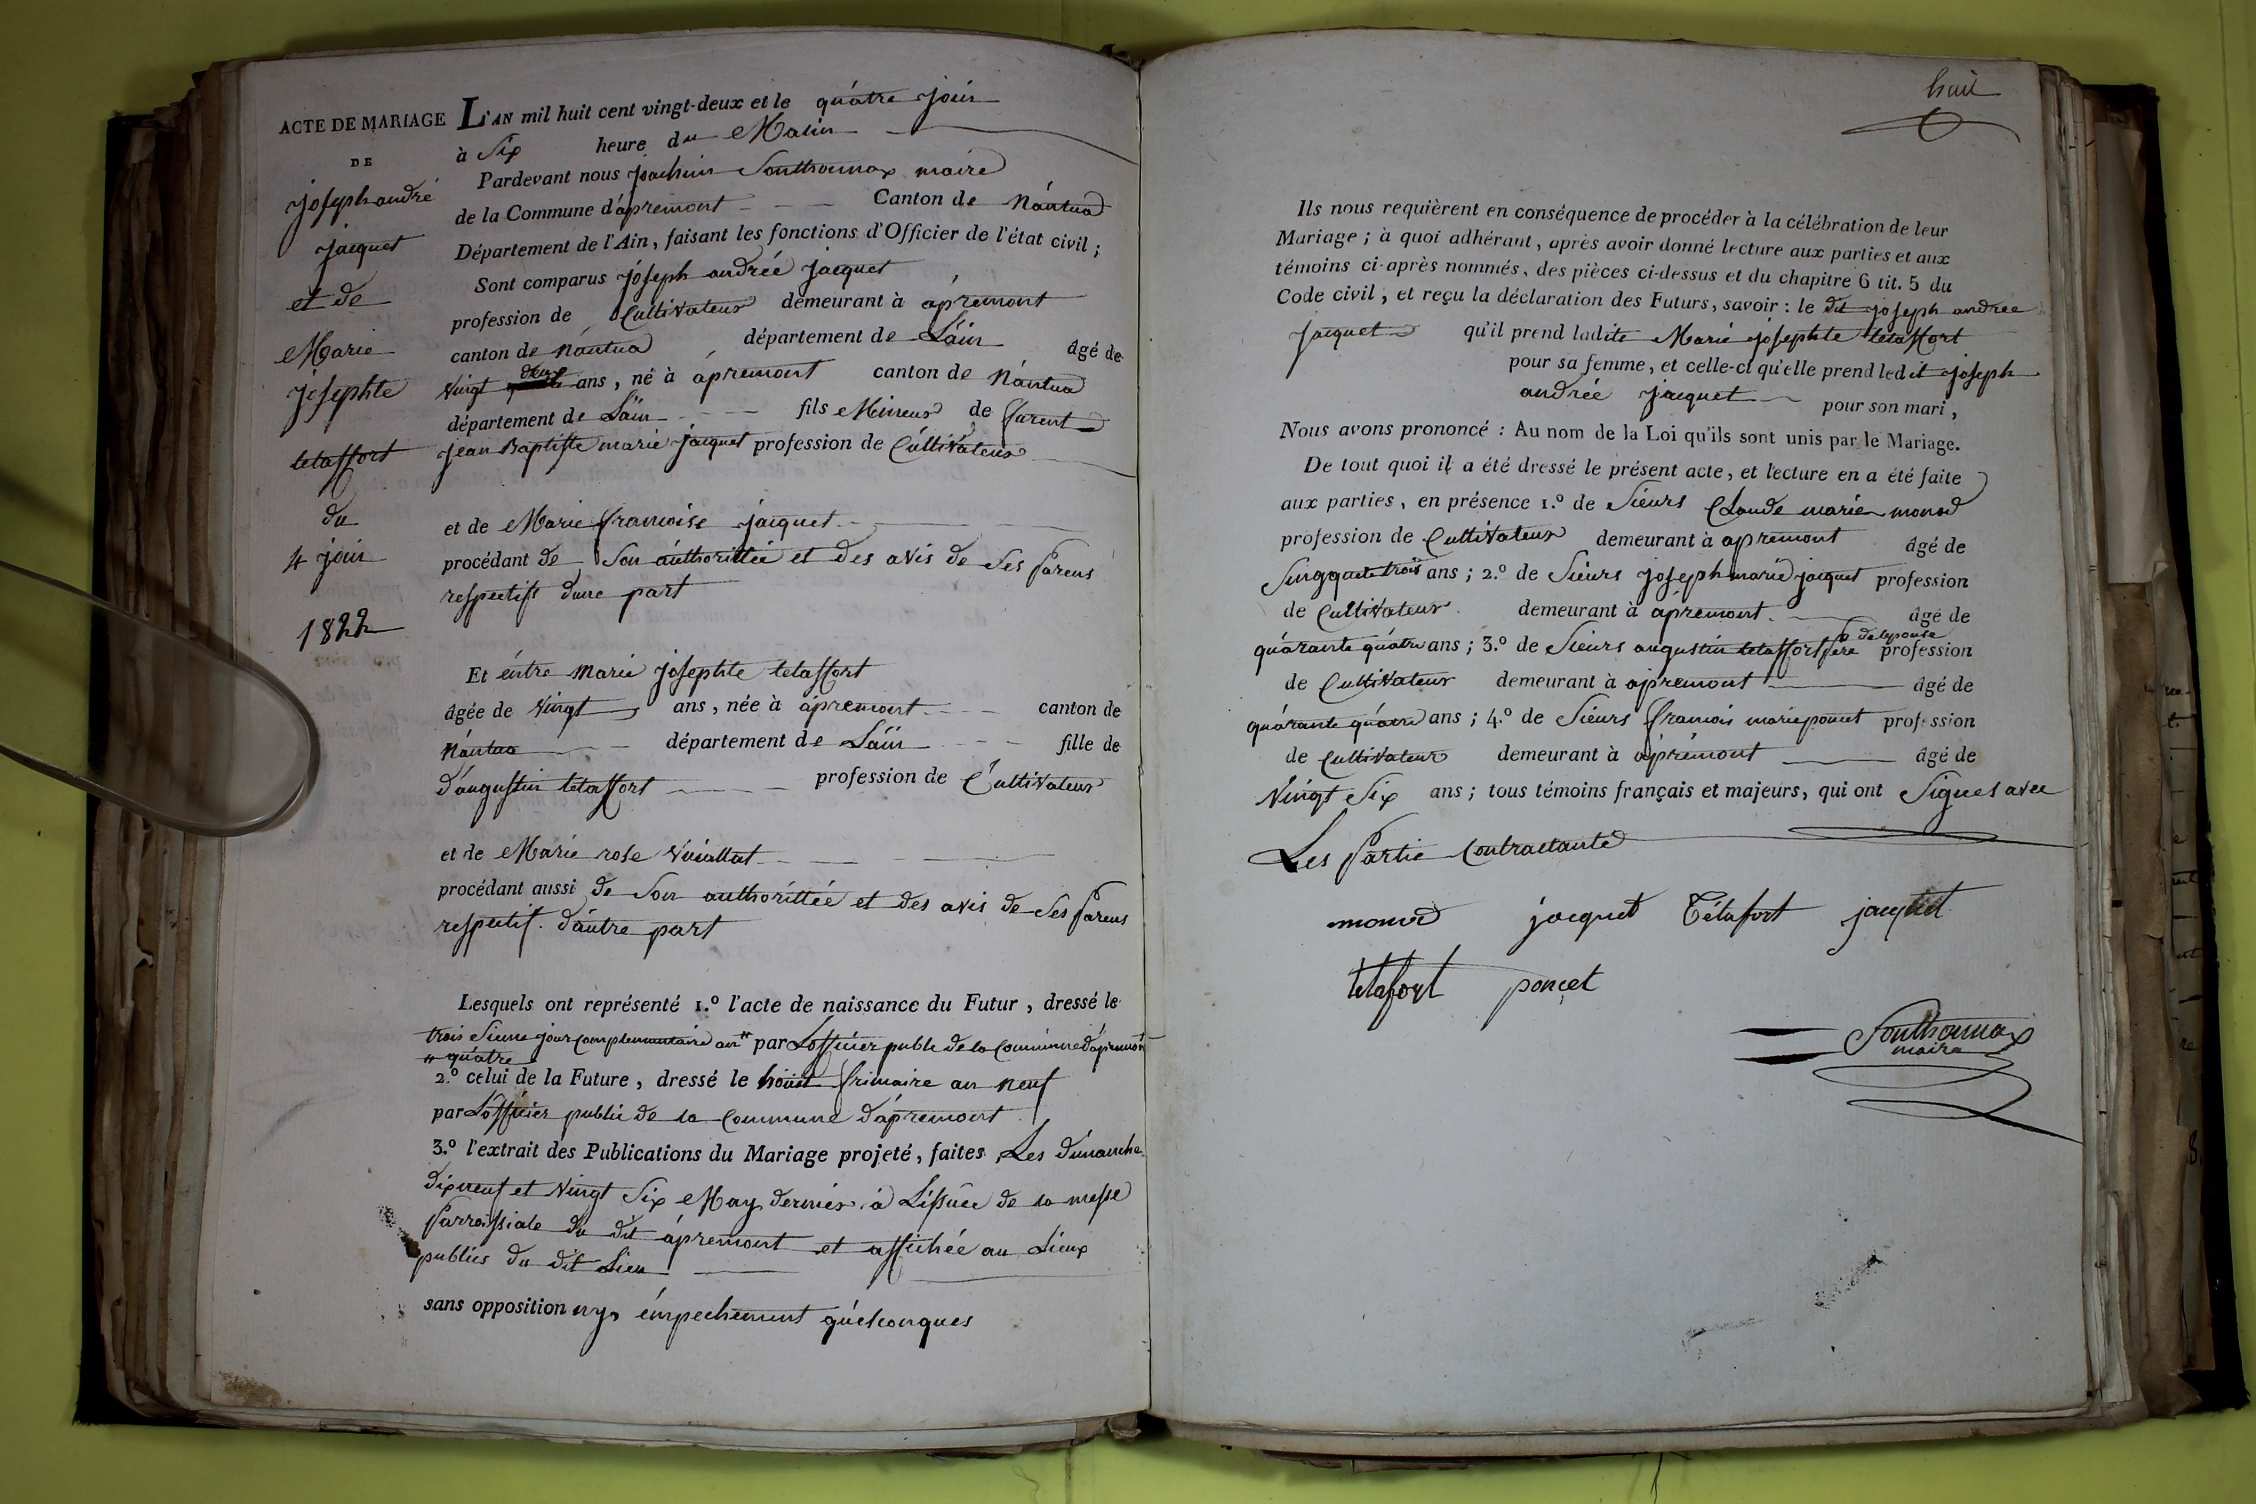 ACTE DE MARIAGE
DE
joseph andré
jacquet
et de
Marie
josephte
tetaffort
du
4 join
1822
L'AN mil huit cent vingt-deux et le quátre join
à Six heure du Matin
Pardevant nous joachim Sonthonnax maire
de la Commune d'ápremont Canton de Nántua
Département de l'Ain, faisant les fonctions d'Officier de l'état civil ;
Sont comparus jóseph andrée jacquet
profession de Cultivateur demeurant à ápremont
canton de Nántua département de Láin âgé de
vingt deux ans, né à ápremont canton de Nántua
département de Láin fils Mineur de parent
jean Baptiste marie jacquet profession de Cúltivateur
et de Marie francoise jacquet
procédant de Son aúthorittée et des avis de Ses parens
respectift dune part
Et éntre Marie josephte tetaffort
âgée de vingt ans, née à apremont canton de
Nántua département de Láin fille de
d'augustin tetaffort profession de Cúltivateur
et de Marie rose Vuiallat
procédant aussi de Son authorittée et des avis de Ses parens
respectif. d'áutre part
Lesquels ont représenté 1.º l'acte de naissance du Futur, dressé le
trois Sieme jour complementaire an par Lofficier public de la Commune d'ápremont
quatre
2.º celui de la Future, dressé le hoüit frimaire an neuf
par Lofficier public de la Commune d'ápremont
3.º l'extrait des Publications du Mariage projeté, faites Les dimanche
dixneuf et vingt Six May dernier á Lissúee de la messe
parroissiale du dit ápremont et affichée au Lieux
publics du dit Lieu
sans opposition ny émpechement quélconques
huit
Ils nous requièrent en conséquence de procéder à la célébration de leur
Mariage ; à quoi adhérant, après avoir donné lecture aux parties et aux
témoins ci-après nommés, des pièces ci-dessus et du chapitre 6 tit. 5 du
Code civil, et reçu la déclaration des Futurs, savoir : le dit joseph andrée
jacquet qu'il prend ladite Marie josephte tetaffort
pour sa femme, et celle-ci qu'elle prend ledit joseph
andrée jacquet pour son mari,
Nous avons prononcé : Au nom de la Loi qu'ils sont unis par le Mariage.
De tout quoi il a été dressé le présent acte, et lecture en a été faite
aux parties, en présence 1.º de Sieurs Claude marie monod
profession de Cultivateur demeurant à apremont âgé de
Sinqquete trois ans ; 2.º de Siéurs joseph marie jacquet profession
de Cultivateur demeurant à ápremont âgé de
de lepouse
quárante quátre ans ; 3.º de Siéurs augustin tetaffort pere profession
de Cultivateur demeurant à apremont âgé de
quárante quátre ans ; 4.º de Siéurs francois marie poncet profession
de Cultivateur demeurant à ápremont âgé de
Vingt Six ans ; tous témoins français et majeurs, qui ont Signes avec
Les partie Contractante
monod jacquet Tétafort jacquet
tetafort ponçet
Sonthonnax
maire